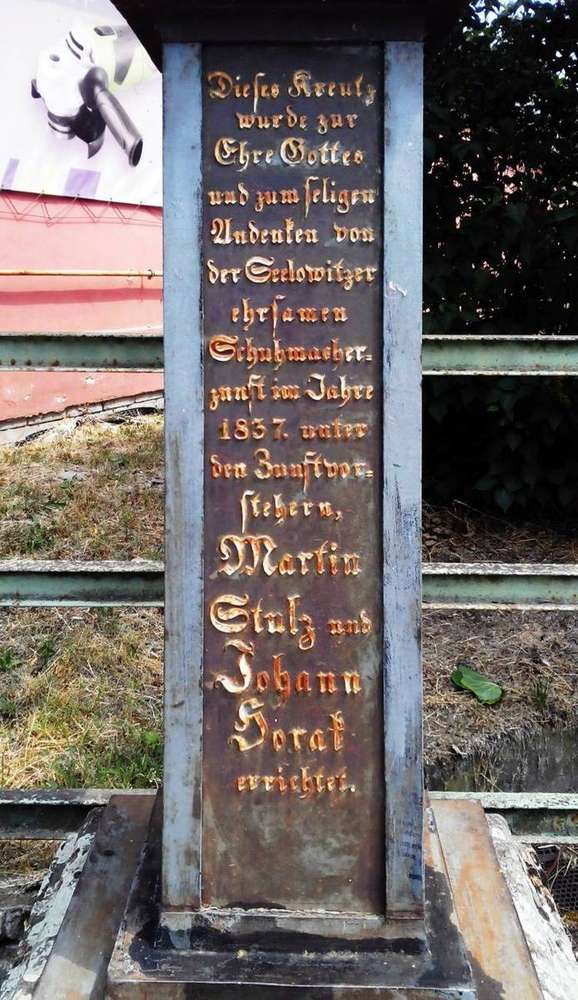 Dieses Kreutz
wurde zur
Ehre Gottes
und zum seligen
Andenken von
der Seelowitzer
ehrsamen
Schuhmacher=
zunft im Jahre
1837. unter
den Zunftvor=
stehern,
Martin
Stulz und
Johann
Horak
errichtet.